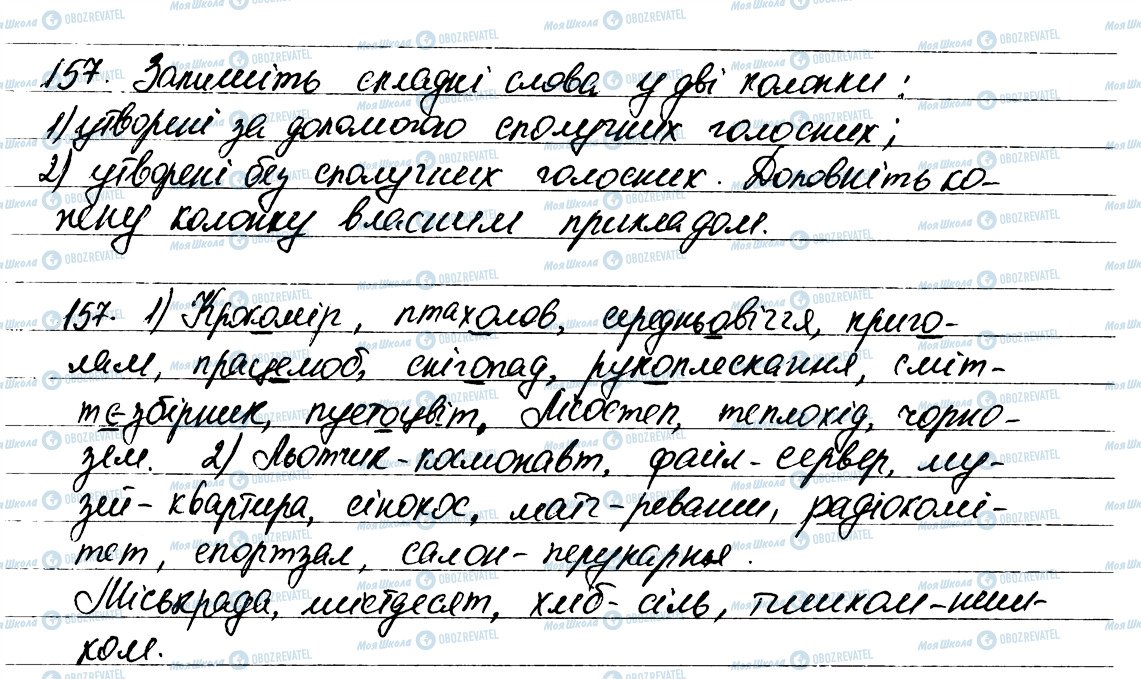 157. Запишіть складні слова у дві колонки:
1) утворені за допомогою сполучних голосних;
2) утворені без сполучних голосних. Доповніть ко-
жену колонку власним прикладом.
157. 1) Крокомір, птахолов, середньовіччя, приго-
лам, працелюб, снігопад, рукоплескання, сміт-
тє-збірник, пустоцвіт, Лісостеп, теплохід, чорно-
зем. 2) Льотчик-космонавт, файл-сервер, му-
зей-квартира, сінокос, матч-реванш, радіокомі-
тет, спортзал, салон-перукарня.
Міськрада, шістдесят, хліб-сіль, тишком-ниш-
ком.